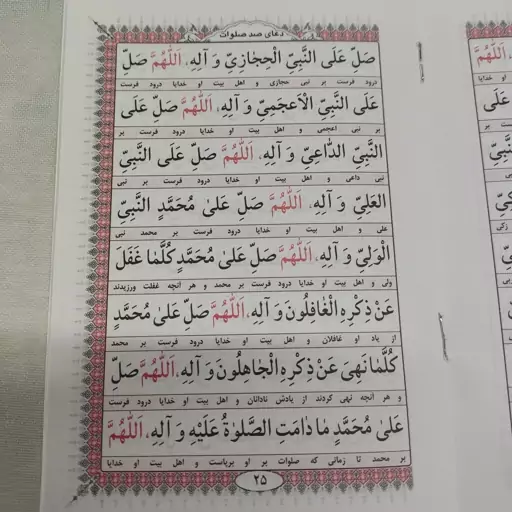 دعای صد صلوات
صَلِّ عَلَی النَّبِیِّ الْحِجٰازِیِّ وَ آلِهِ، اَللّٰهُمَّ صَلِّ
درود فرست بر نبی حجازی و اهل بیت او خدایا درود فرست
عَلَی النَّبِیِّ الْاَعجَمِیِّ وَ آلِهِ، اَللّٰهُمَّ صَلِّ عَلَی
بر نبی اعجمی و اهل بیت او خدایا درود فرست بر
النَّبِیِّ الدّٰاعِیِّ وَ آلِهِ، اَللّٰهُمَّ صَلِّ عَلَی النَّبِیِّ
نبی داعی و اهل بیت او خدایا درود فرست بر نبی
العَلِیِّ وَ آلِهِ، اَللّٰهُمَّ صَلِّ عَلیٰ مُحَمَّدٍ النَّبِیِّ
علی و اهل بیت او خدایا درود فرست بر محمد نبی
الْوَلِیِّ وَ آلِهِ، اَللّٰهُمَّ صَلِّ عَلیٰ مُحَمَّدٍ کُلَّمٰا غَفَلَ
ولی و اهل بیت او خدایا درود فرست بر محمد و هر آنچه غفلت ورزیدند
عَنْ ذِکْرِهِ الْغٰافِلُونَ وَ آلِهِ، اَللّٰهُمَّ صَلِّ عَلیٰ مُحَمَّدٍ
از یاد او غافلان و اهل بیت او خدایا درود فرست بر محمد
کُلَّمٰا نَهیٰ عَنْ ذِکْرِهِ الْجٰاهِلُونَ وَ آلِهِ، اَللّٰهُمَّ صَلِّ
و هر آنچه نهی کردند از یادش نادانان و اهل بیت او خدایا درود فرست
عَلیٰ مُحَمَّدٍ مٰا دٰامَتِ الصَّلوٰةُ عَلَیْهِ وَ آلِهِ، اَللّٰهُمَّ
بر محمد تا زمانی که صلوات بر او برپاست و اهل بیت او خدایا
۲۵